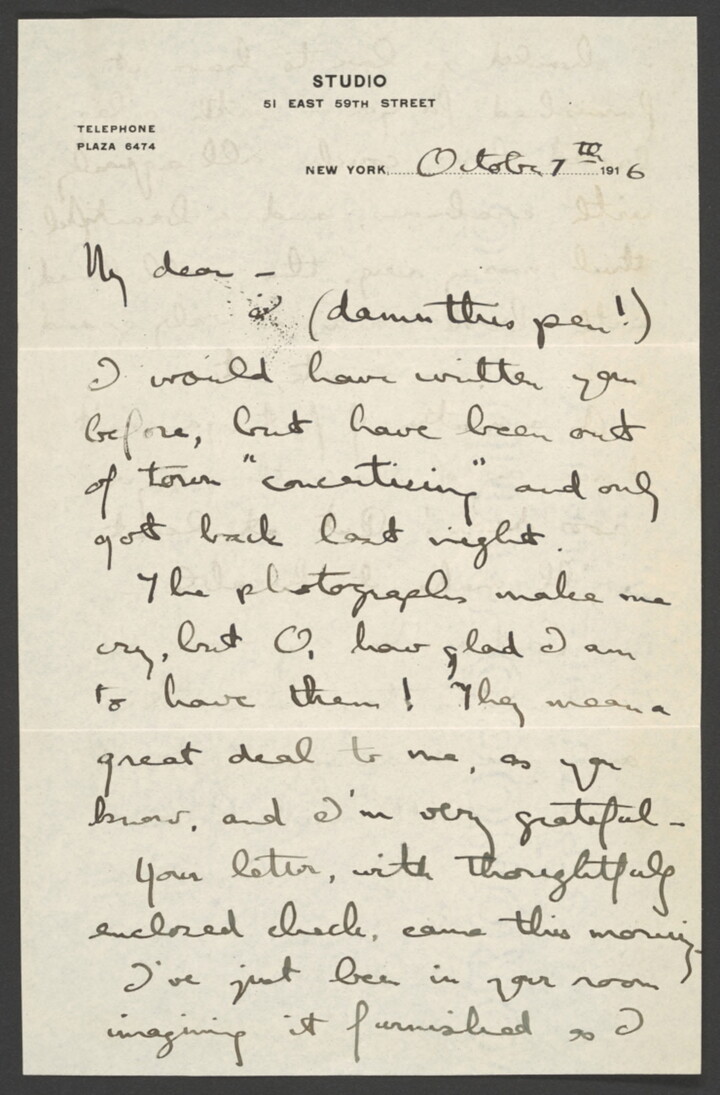 STUDIO
51 EAST 59TH STREET
TELEPHONE
PLAZA 6474
NEW YORK, October 7th 1916
My dear –
(damn this pen!)
I would have written you
before, but have been out
of town "concertising" and only
got back last night.
The photographs make me
cry, but O, how glad I am
to have them! They mean a
great deal to me, as you
know, and I'm very grateful –
Your letter, with thoughtfully
enclosed check, came this morning.
I've just been in your room
imagining it furnished as I